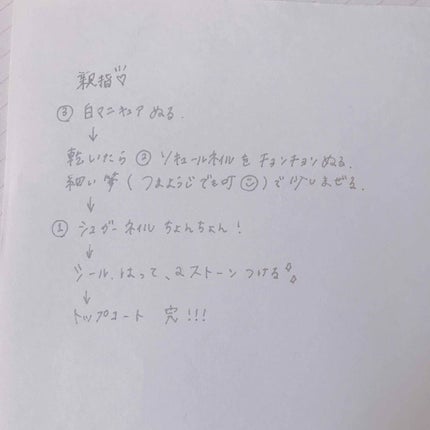 親指♡
③ 白マニキュア ぬる.
↓
乾いたら ② ソキュールネイル を チョンチョン ぬる.
細い筆 ( つまようじでも可 ☺ ) で 少しまぜる.
↓
① シュガーネイル ちょんちょん!
↓
シール はって、ストーン つける
↓
トップコート 完!!!